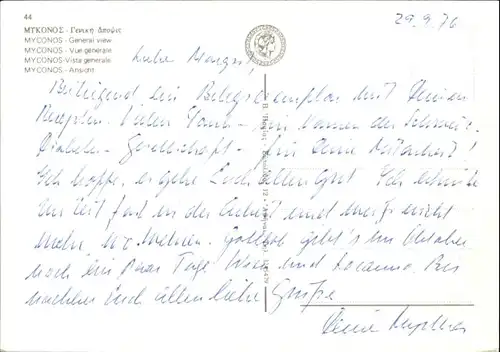 44
ΜΥΚΟΝΟΣ - Γενική άποψις
MYCONOS - General view
MYCONOS - Vue générale
MYCONOS - Vista generale
MYCONOS - Ansicht
29.9.76
Liebe Margrit,
Beiliegend ein Belegsexemplar mit Deinen
Rezepten. Vielen Dank - im Namen der Schweiz.
Diabetes-Gesellschaft - für Deine Mitarbeit!
Ich hoffe, es gehe Euch allen gut. Ich
zur Zeit fast in der Arbeit und weiss nicht
mehr wo wehren. Gottlob geht's im Oktober
noch ein paar Tage und Locarno. Bis
nachher Euch allen liebe Grüsse
Deine